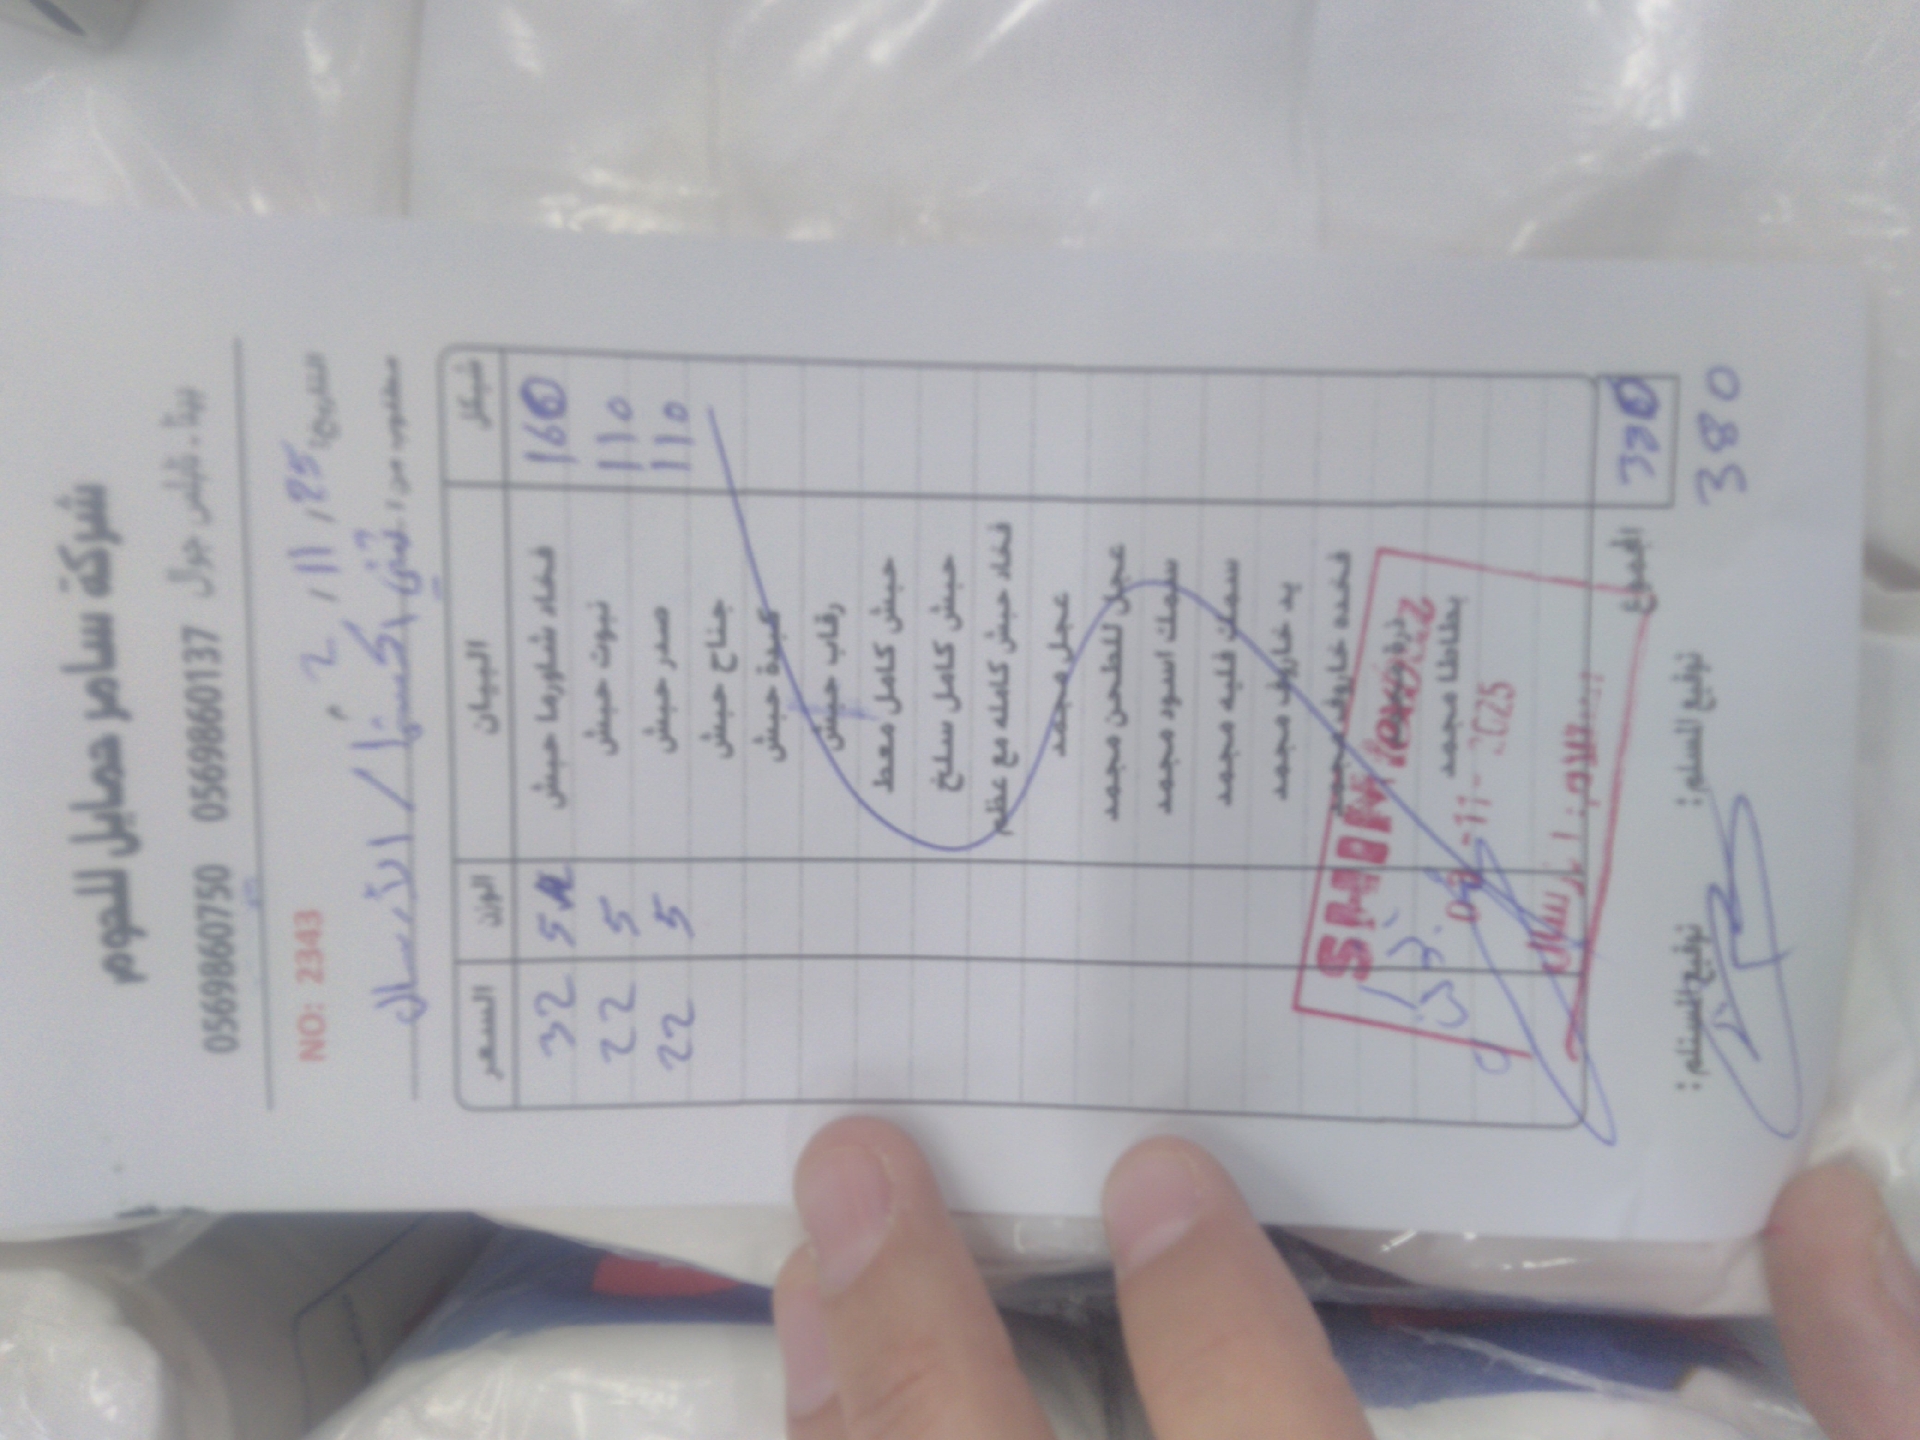 شركة سامر حمايل للحوم
بيتا - نابلس جوال 0569860137 0569860750
التاريخ: 2 / 11 / 25 NO: 2343
مطلوب من: / الأرسال
شيكل البيان الوزن السعر
160 فخاد شاورما حبش 5 32
110 نبوت حبش 5 22
110 صدر حبش 5 22
جناح حبش
كبدة حبش
رقاب حبش
حبش كامل معط
حبش كامل سلخ
فخاد حبش كامله مع عظم
عجل مجمد
عجل للطحن مجمد
سمك اسود مجمد
سمك فليه مجمد
يد خاروف مجمد
فخده خاروف مجمد
بطاطا مجمد
SHINI
-11- 2025
المجموع
380
توقيع المسلم:
توقيع المستلم: